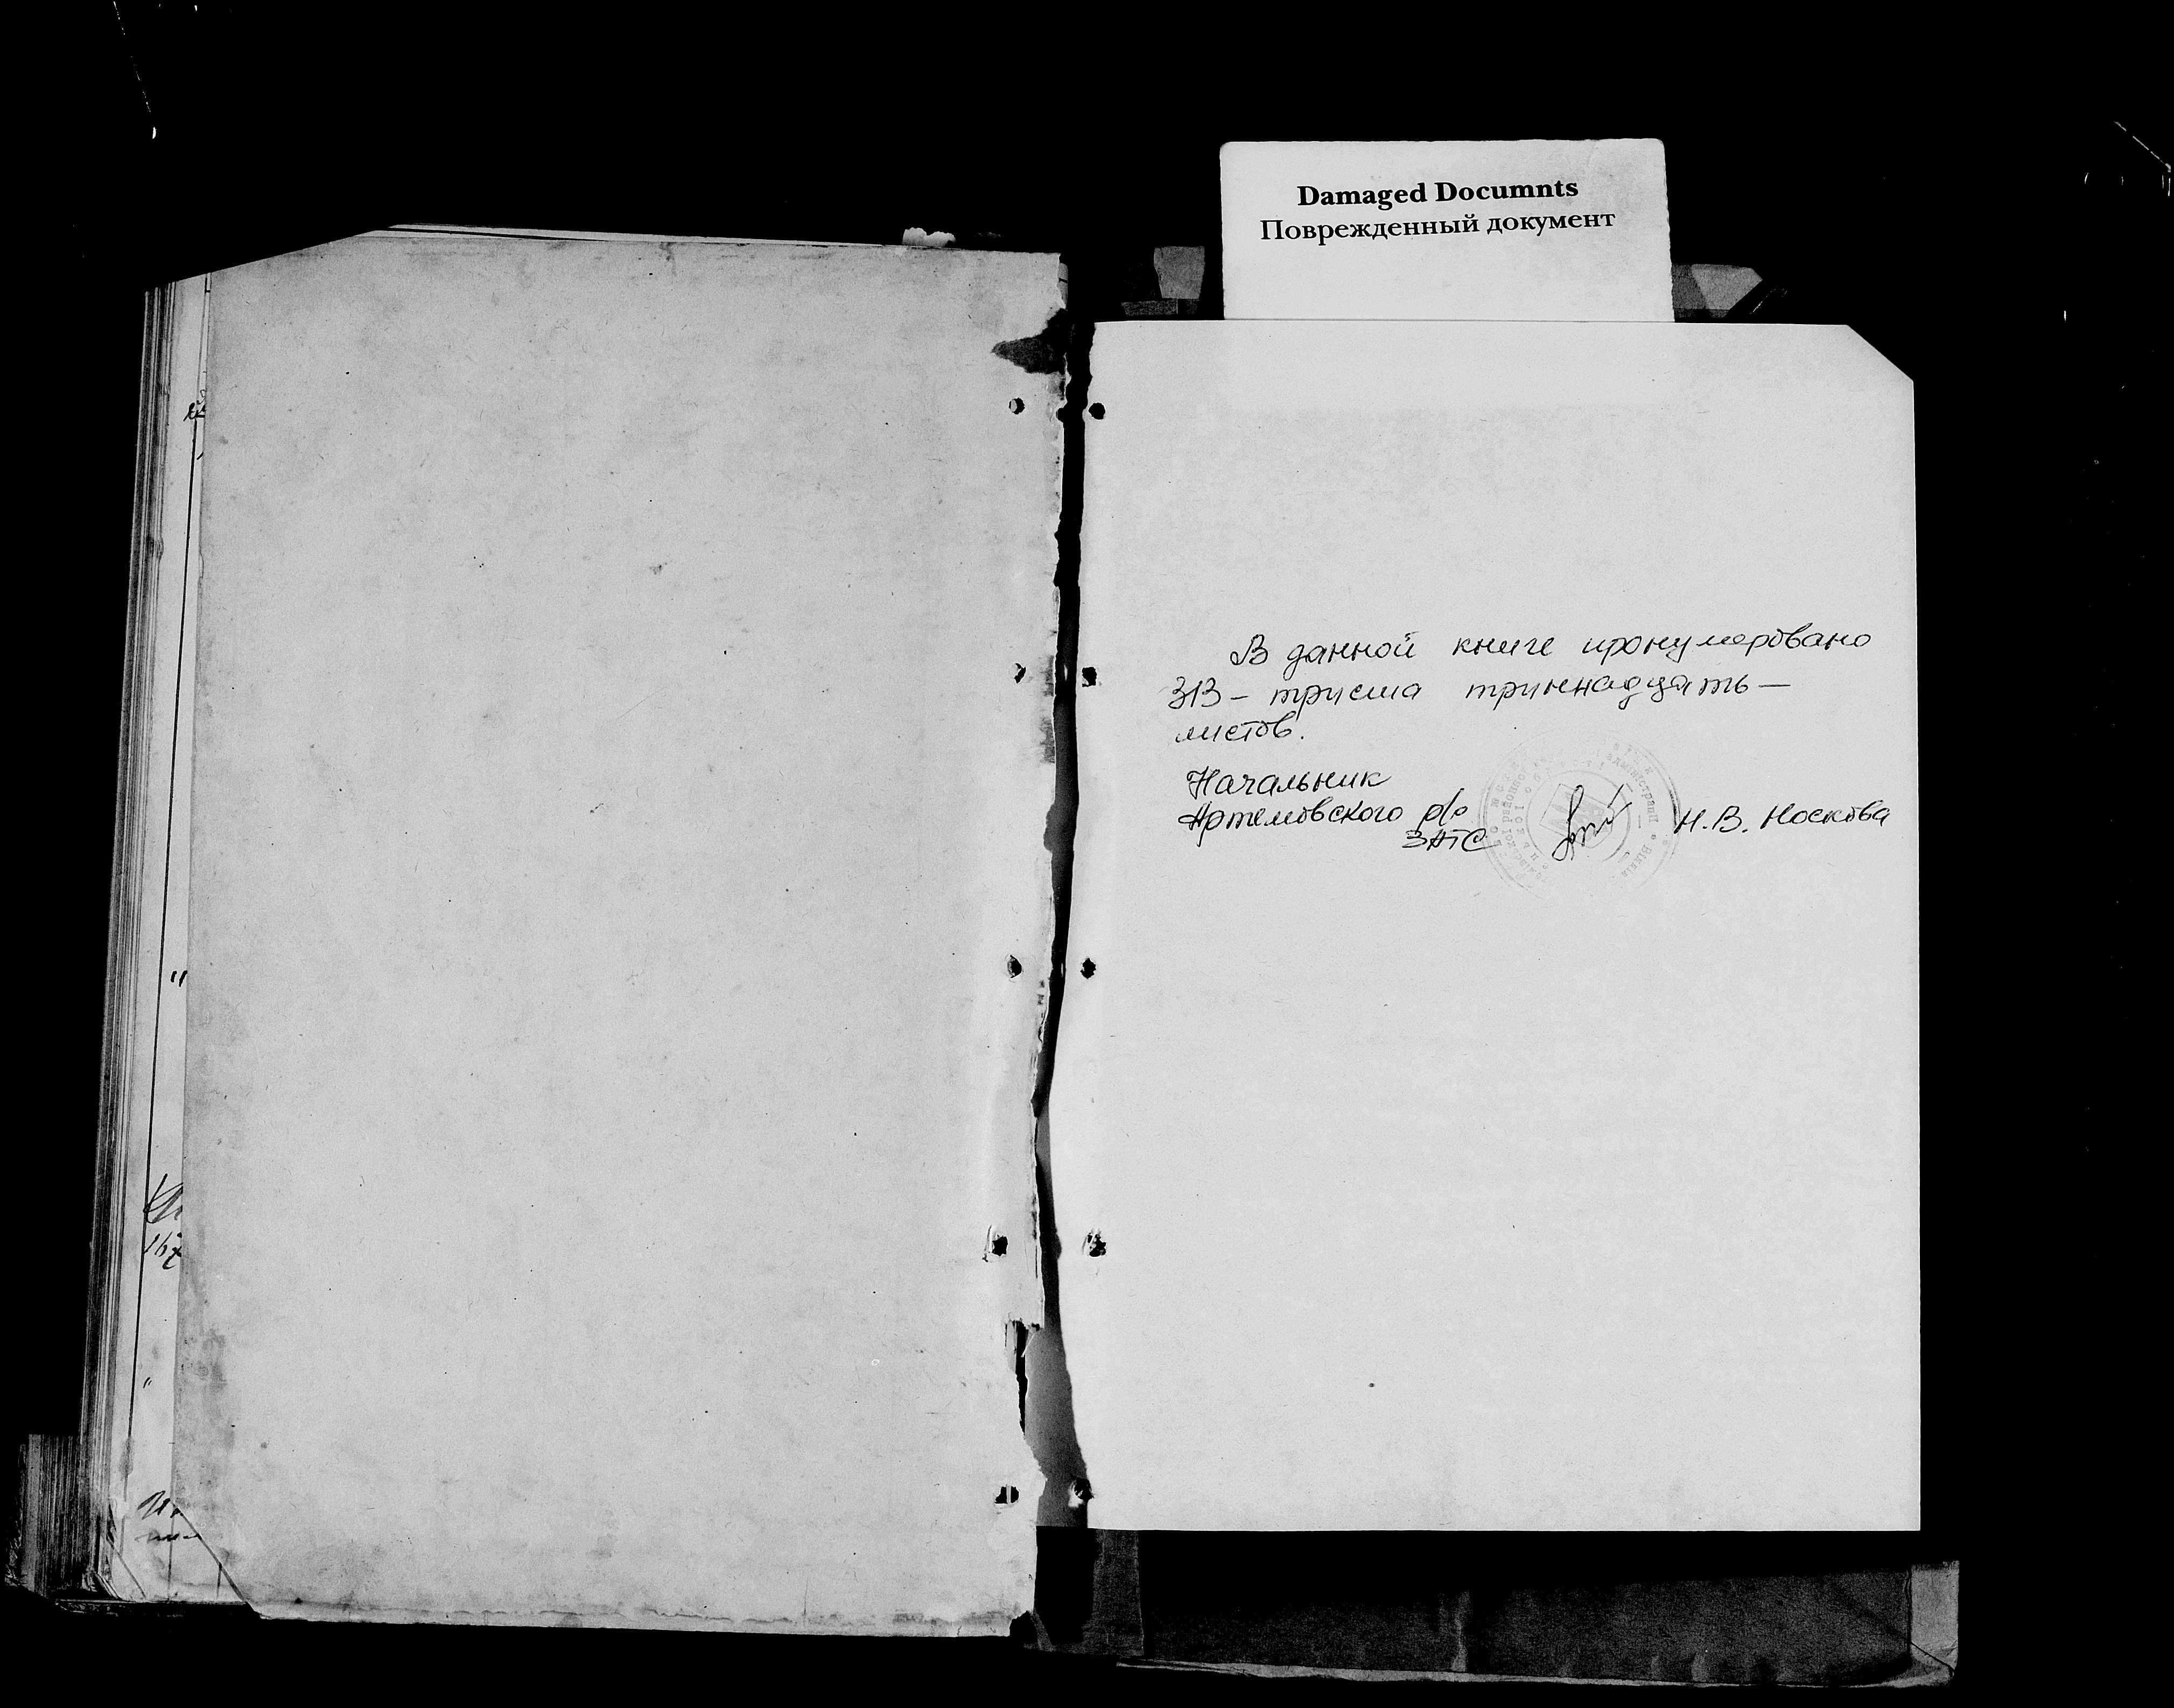 Damaged Documnts
Поврежденный документ
В данной книге пронумеровано
313 – триста тринадцать –
листов.
Начальник
Артемовского р/о
ЗАГС
Н.В. Носкова